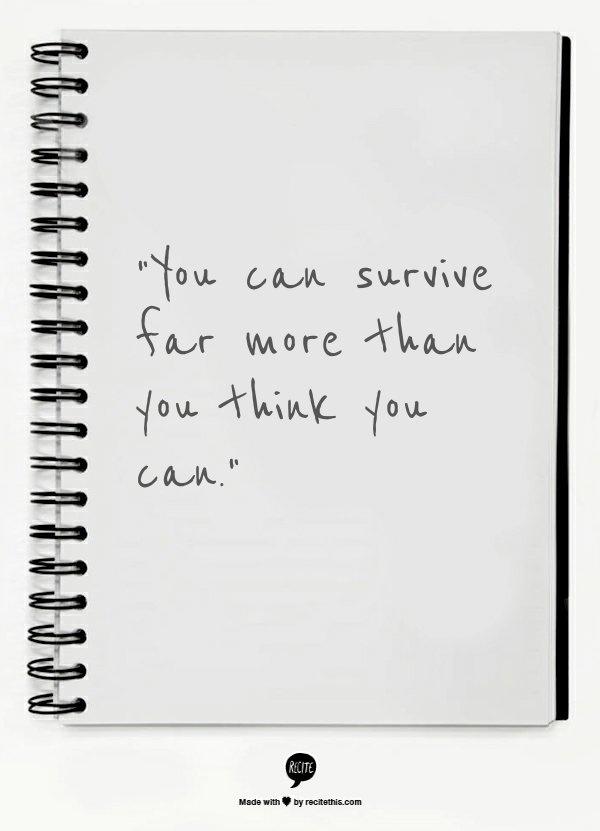 "You can survive
far more than
you think you
can."
RECITE
Made with ♥ by recitethis.com